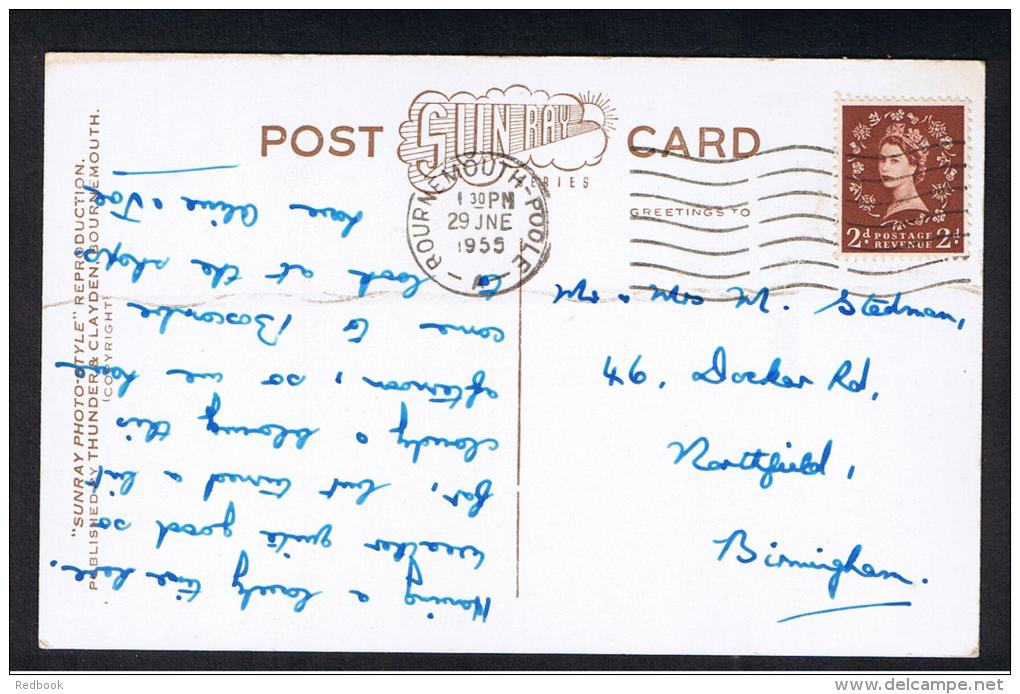 POST CARD
SUN RAY
SERIES
GREETINGS TO
BOURNEMOUTH-POOLE
1 30 PM
29 JNE
1955
A
2d POSTAGE 2d
REVENUE
"SUNRAY PHOTO-STYLE" REPRODUCTION.
PUBLISHED BY THUNDER & CLAYDEN, BOURNEMOUTH.
(COPYRIGHT)
Having a lovely time here,
weather quite good so
far, but turned a bit
cloudy & blowing this
afternoon, so we have
come to Boscombe
to look at the shops
Love Olive & Joe
Mr & Mrs M. Stedman,
46, Docker Rd,
Northfield,
Birmingham.
©Redbook
www.delcampe.net